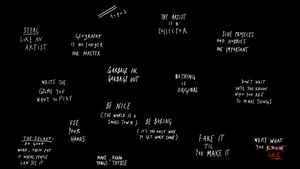 1+1=3
STEAL
LIKE AN
ARTIST
GEOGRAPHY
IS NO LONGER
OUR MASTER
THE ARTIST
IS A
COLLECTOR
SIDE PROJECTS
AND HOBBIES
ARE IMPORTANT
WRITE THE
GAME YOU
WANT TO PLAY
GARBAGE IN,
GARBAGE OUT
NOTHING
IS
ORIGINAL
DON'T WAIT
UNTIL YOU KNOW
WHO YOU ARE
TO MAKE THINGS
BE NICE
(THE WORLD IS A
SMALL TOWN)
USE
YOUR
HANDS
BE BORING
(IT'S THE ONLY WAY
TO GET WORK DONE)
THE SECRET:
DO GOOD
WORK, THEN PUT
IT WHERE PEOPLE
CAN SEE IT
MAKE
THINGS
KNOW
THYSELF
FAKE IT
'TIL
YOU MAKE IT
WRITE WHAT
YOU KNOW
LIKE